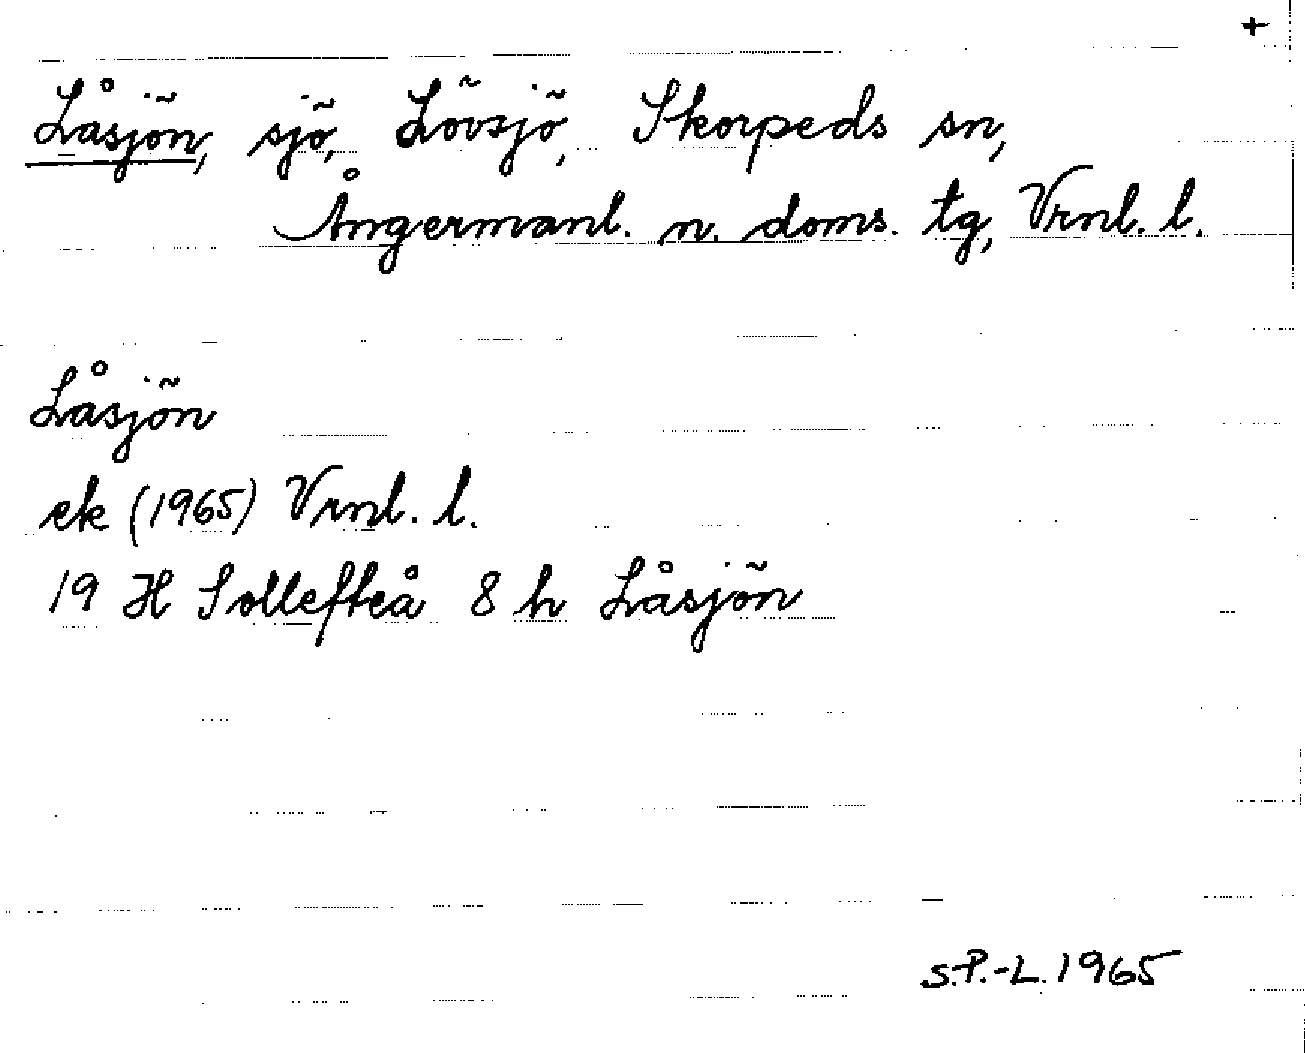 +
Låsjön, sjö, Lövsjö, Skorpeds sn,
Ångermanl. n. doms. tg, Vrnl. l.
Låsjön
ek (1965) Vrnl. l.
19 H Sollefteå 8 h Låsjön
S.P.-L. 1965